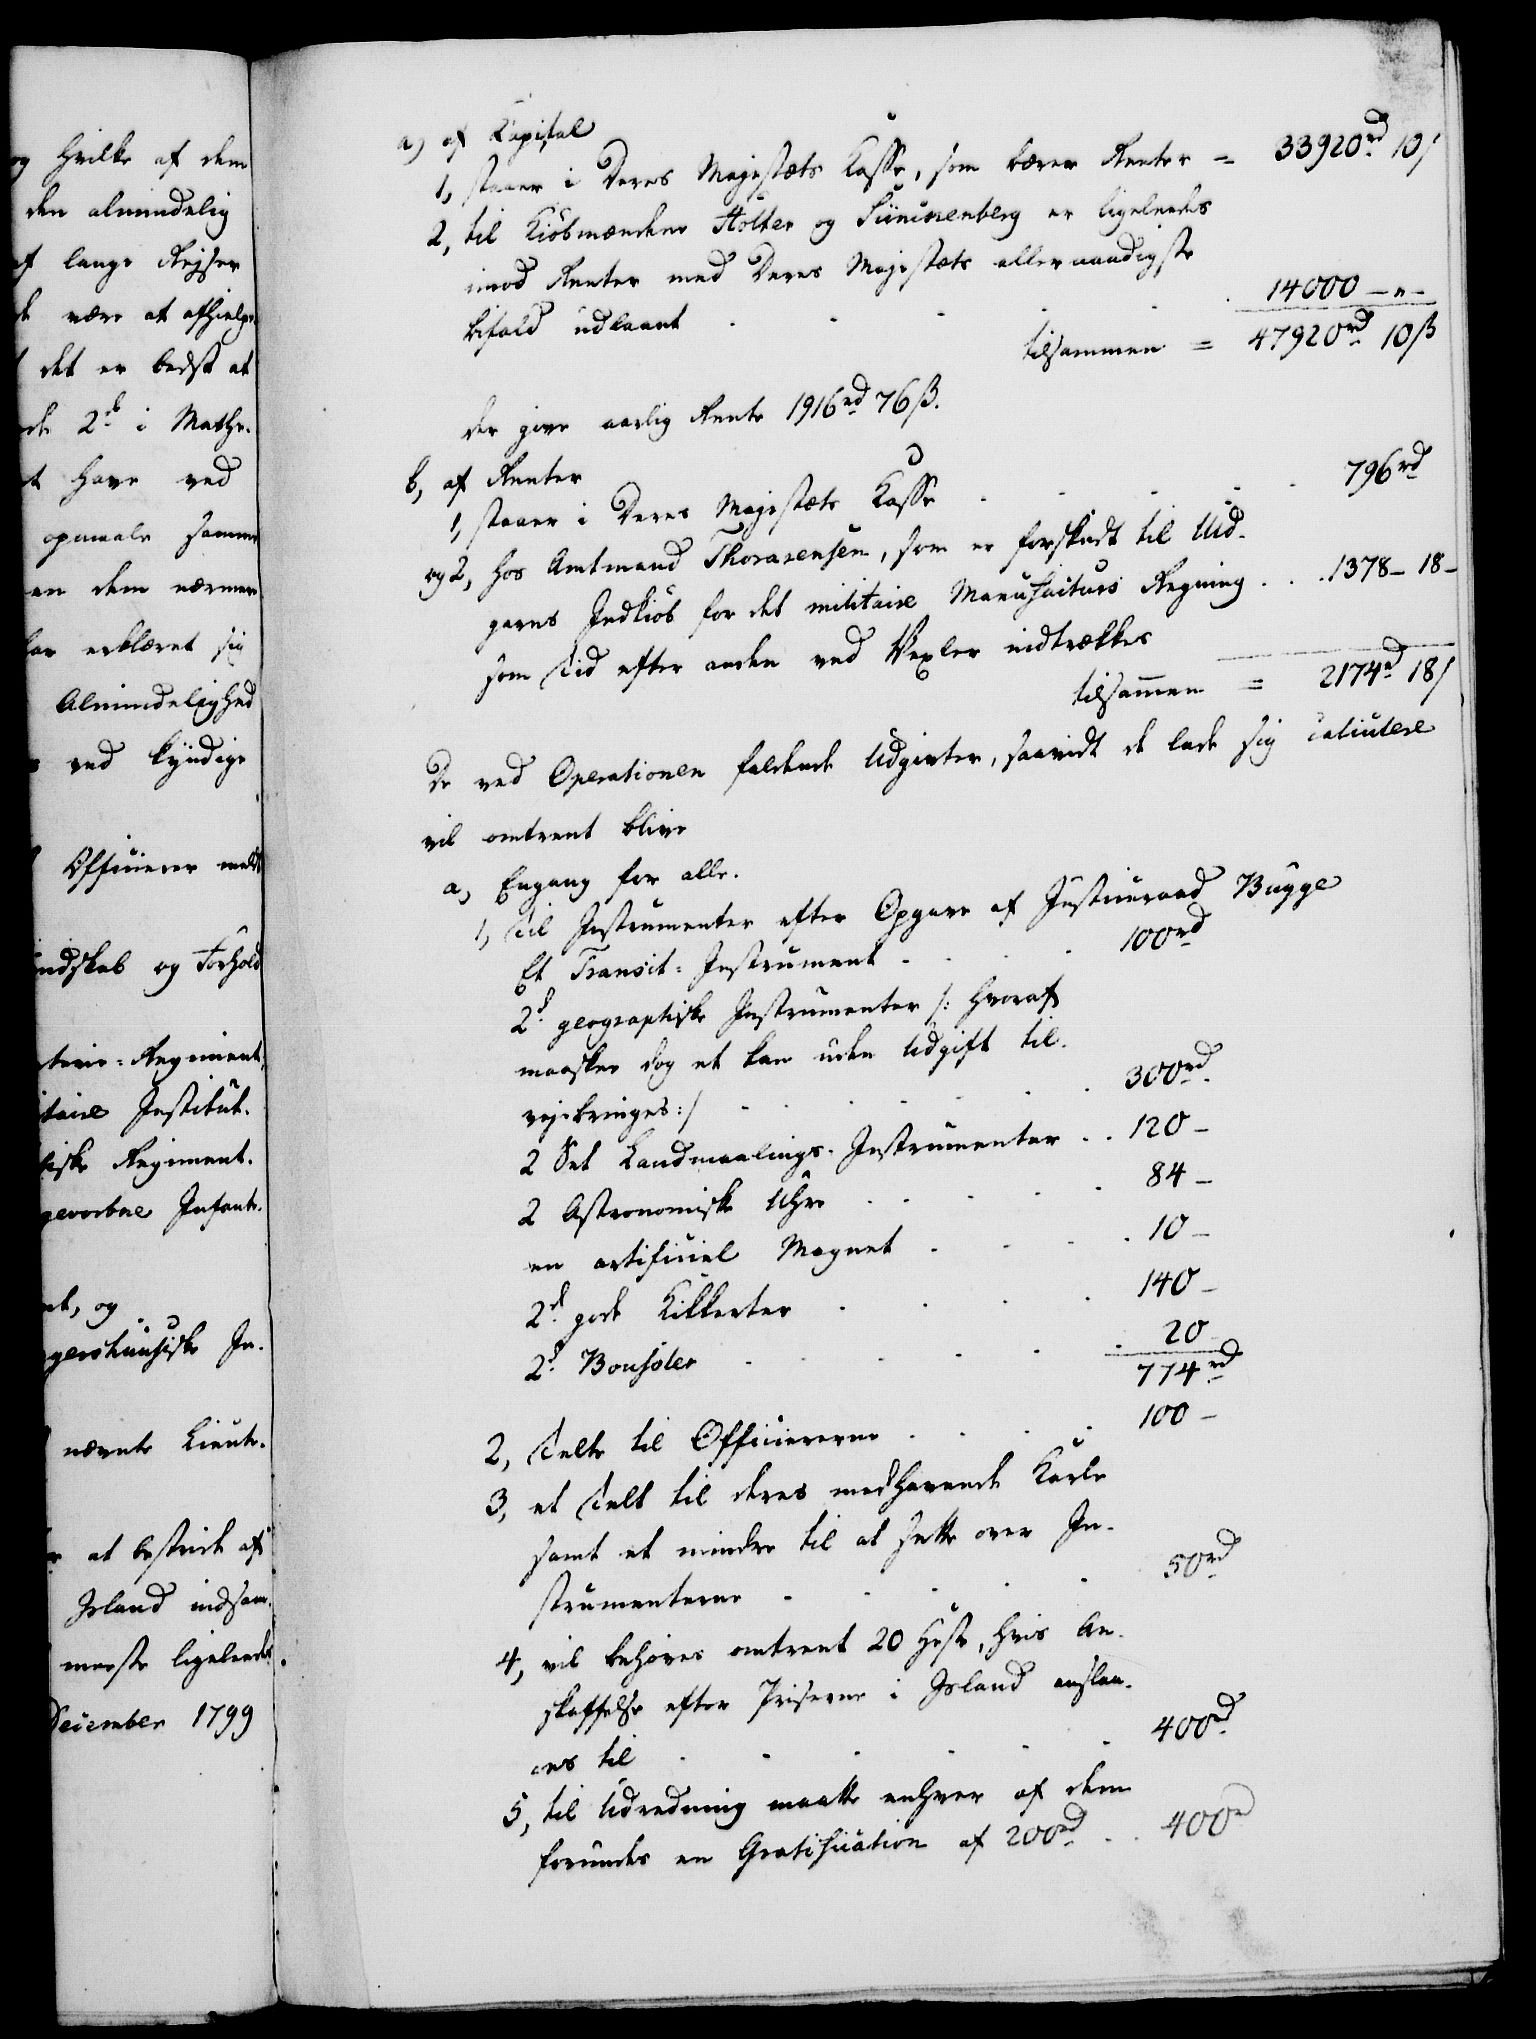 og hvilke af dem
den almindelig
af lange Rejser
være at afhielpe
det er bedst at
de 2de i Mathe-
t have ved
opmaale samme
en dem nærmere
har erklæret sig
Almindelighed
ved kyndige
Officierer meldt
ndskab og Forhold
Regiment,
itaire Institut.
ske Regiment.
geworbne Infant.
nt, og
gershuusiske In-
nævnte Lieute-
at bestride af
Island indsam-
meste ligeledes
December 1799
a) af Kapital
1, staaer i Deres Majestæts Kasse, som bærer Renter = 33920rd 10/
2, til Kiøbmændene Stolter og Sünckenberg er ligeledes
imod Renter med Deres Majestæts allernaadigste
bifald udlaant . . . . . 14000 – " –
tilsammen = 47920rd 10ß
der give aarlig Rente 1916rd 76ß.
b, af Renter
1, staaer i Deres Majestæts Kasse . . . . . 796rd
og 2, hos Amtmand Thorarensen, som er forskudt til Uld-
garns Indkiøb for det militaire Manufacturs Regning . . . 1378 – 18 –
som Tid efter anden ved Vexler indtrækkes
tilsammen = 2174rd 18/
De ved Operationen faldende Udgivter, saavidt de lade sig calculere
vil omtrent blive
a, Engang for alle.
1, Til Instrumenter efter Opgave af Justiceraad Bugge
Et Transit-Instrument . . . . 100rd
2de geographiske Instrumenter /: hvoraf
maaskee dog et kan uden Udgift til-
vejebringes :/ . . . . . 300rd
2 Set Landmaalings-Instrumenter . . 120 –
2 Astronomiske Uhre . . . . . 84 –
en artificiel Magnet . . . . 10 –
2de gode Kikkerter . . . . 140 –
2de Boussoler . . . . . 20
774rd
2, Telte til Officiererne . . . . 100 –
3, et Telt til deres medhavende Karle
samt et mindre til at sætte over In-
strumenterne . . . . . 50rd
4, vil behøves omtrent 20 Heste, hvis An-
skaffelse efter Priserne i Island anslaa-
es til . . . . . . 400rd
5, til Udredning maatte enhver af dem
forundes en Gratification af 200rd . . 400rd